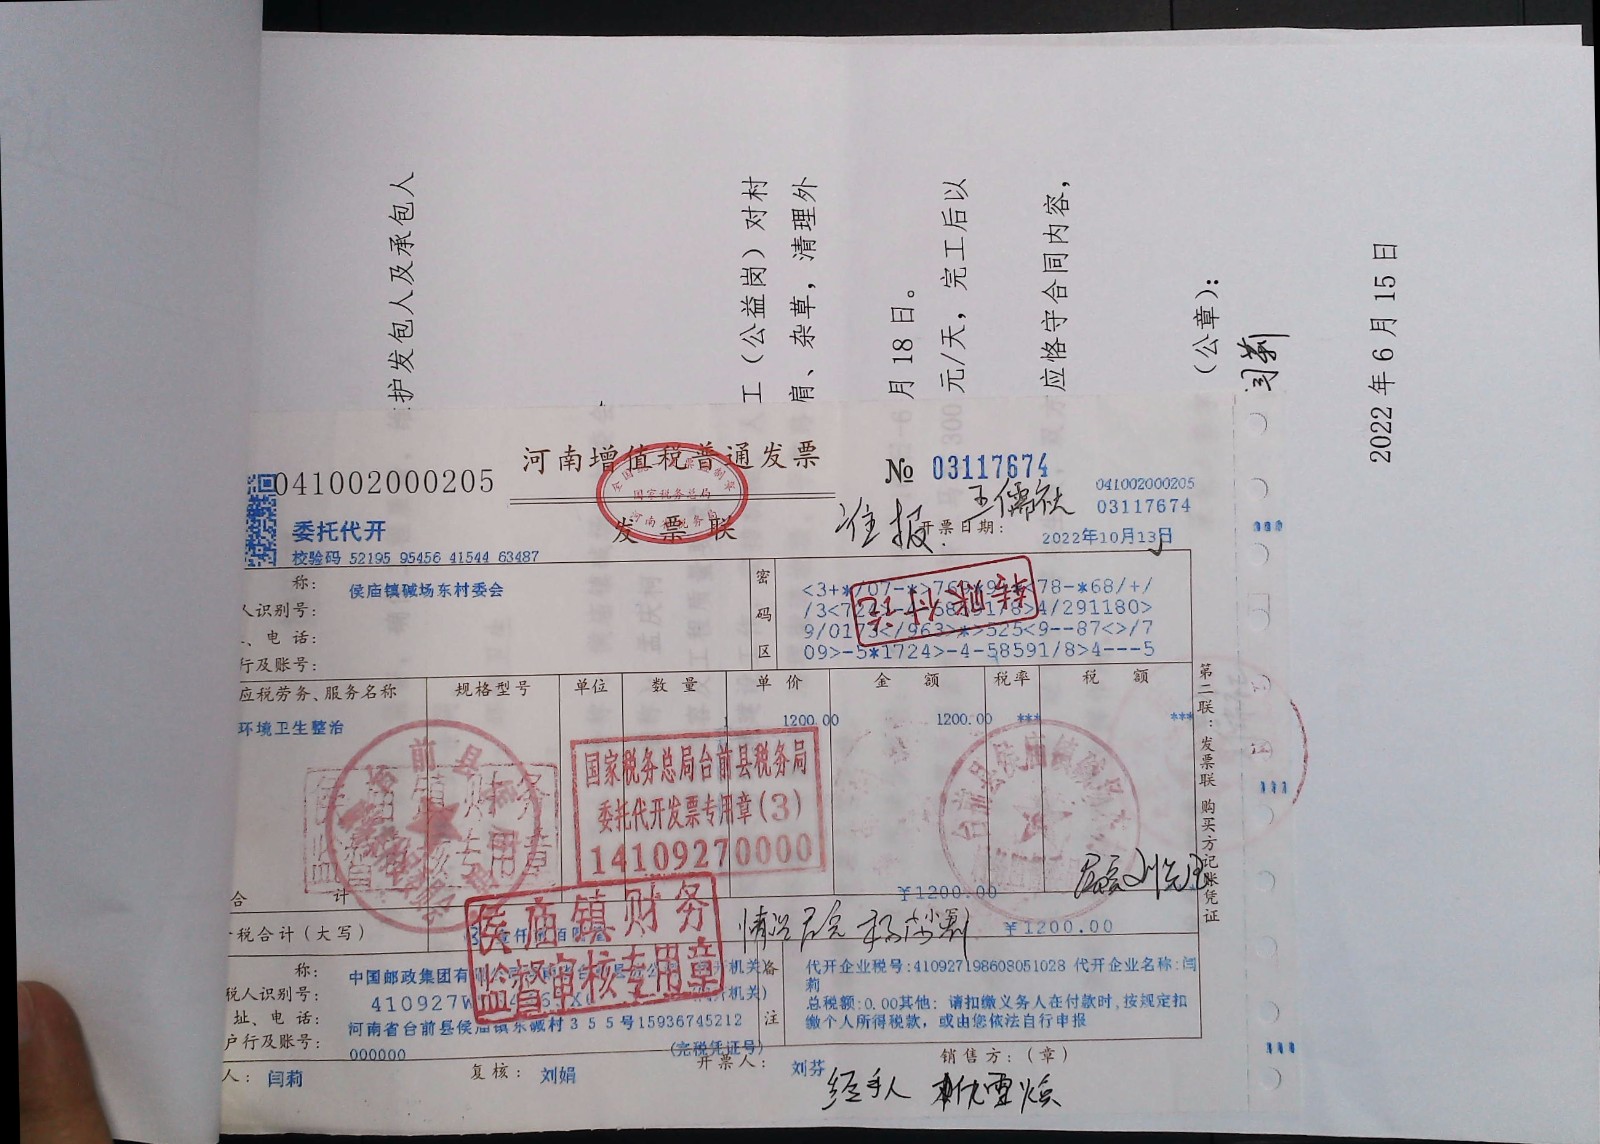 护发包人及承包人
工（公益岗）对村
肩、杂草，清理外
月18日。
元/天，完工后以
应恪守合同内容，
（公章）：
闫莉
2022年6月15日
041002000205
河南增值税普通发票
发票联
全国统一发票监制章
国家税务总局
河南省税务局
№ 03117674
041002000205
03117674
委托代开
校验码 52195 95456 41544 63487
准报
开票日期：
2022年10月13日
称：
侯庙镇碱场东村委会
人识别号：
、电话：
行及账号：
密码区
09>-5*1724>-4-58591/8>4---5
转账付讫
应税劳务、服务名称
规格型号
单位
数量
单价
金额
税率
税额
环境卫生整治
1
1200.00
1200.00
***
***
国家税务总局台前县税务局
委托代开发票专用章(3)
14109270000
合计
￥1200.00
税合计（大写）
￥1200.00
侯庙镇财务
监督审核专用章
情况属实
称：
中国邮政集团有
税人识别号：
410927W
址、电话：
河南省台前县侯庙镇东碱村355号15936745212
户行及账号：
000000
(完税凭证号)
备注
代开企业税号:410927198608051028 代开企业名称:闫
莉
总税额:0.00其他: 请扣缴义务人在付款时,按规定扣
缴个人所得税款，或由您依法自行申报
人：
闫莉
复核：
刘娟
开票人：
刘芬
销售方：(章)
经手人
第二联：发票联 购买方记账凭证